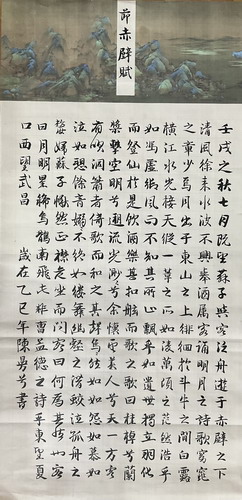 節赤壁賦
壬戌之秋七月既望蘇子與客泛舟遊于赤壁之下
清風徐來水波不興舉酒屬客誦明月之詩歌窈窕
之章少焉月出于東山之上徘徊於斗牛之間白露
橫江水光接天縱一葦之所如凌萬頃之茫然浩乎
如馮虛御風而不知其所止飄乎如遺世獨立羽化
而登仙于是飲酒樂甚扣舷而歌之歌曰桂棹兮蘭
槳擊空明兮溯流光渺渺兮余懷望美人兮天一方客
有吹洞簫者倚歌而和之其聲嗚嗚然如怨如慕如
泣如愬餘音嫋嫋不絕如縷舞幽壑之潛蛟泣孤舟之
嫠婦蘇子愀然正襟危坐而問客曰何為其然也客
曰月明星稀烏鵲南飛此非曹孟德之詩乎東望夏
口西望武昌 歲在乙巳年陳勇書